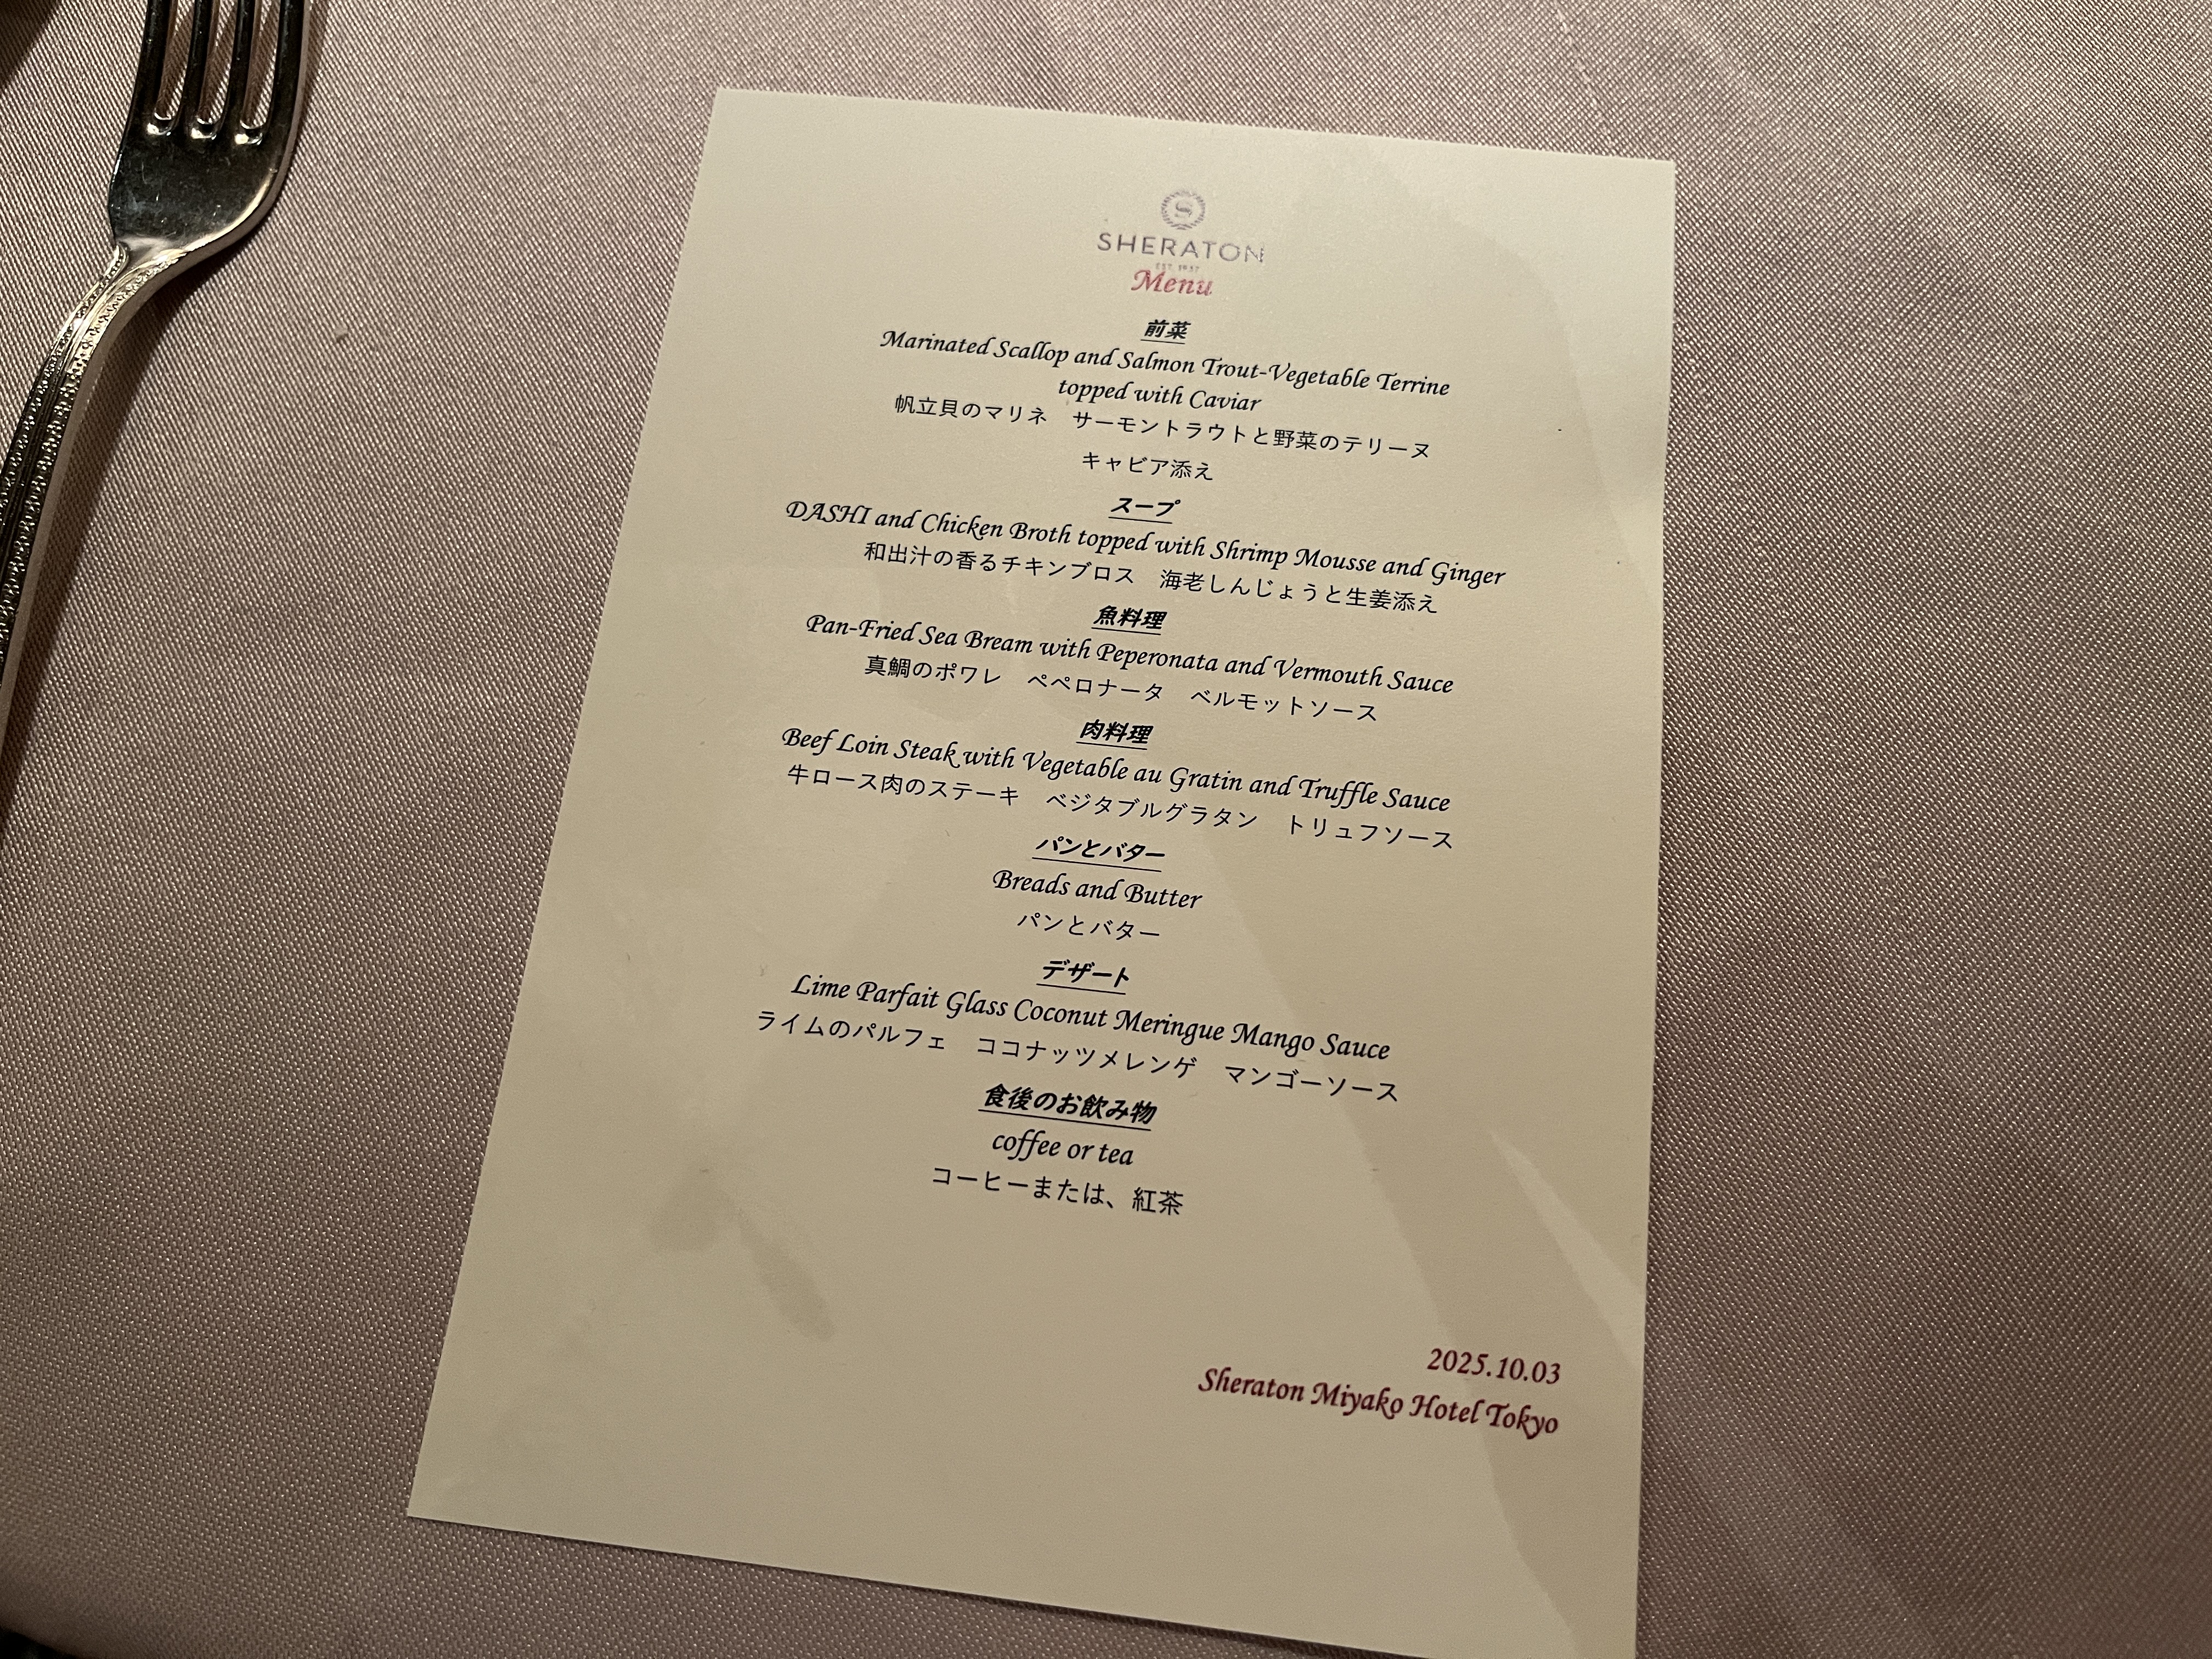 S
SHERATON
EST. 1937
Menu
前菜
Marinated Scallop and Salmon Trout-Vegetable Terrine
topped with Caviar
帆立貝のマリネ　サーモントラウトと野菜のテリーヌ
キャビア添え
スープ
DASHI and Chicken Broth topped with Shrimp Mousse and Ginger
和出汁の香るチキンブロス　海老しんじょうと生姜添え
魚料理
Pan-Fried Sea Bream with Peperonata and Vermouth Sauce
真鯛のポワレ　ペペロナータ　ベルモットソース
肉料理
Beef Loin Steak with Vegetable au Gratin and Truffle Sauce
牛ロース肉のステーキ　ベジタブルグラタン　トリュフソース
パンとバター
Breads and Butter
パンとバター
デザート
Lime Parfait Glass Coconut Meringue Mango Sauce
ライムのパルフェ　ココナッツメレンゲ　マンゴーソース
食後のお飲み物
coffee or tea
コーヒーまたは、紅茶
2025.10.03
Sheraton Miyako Hotel Tokyo